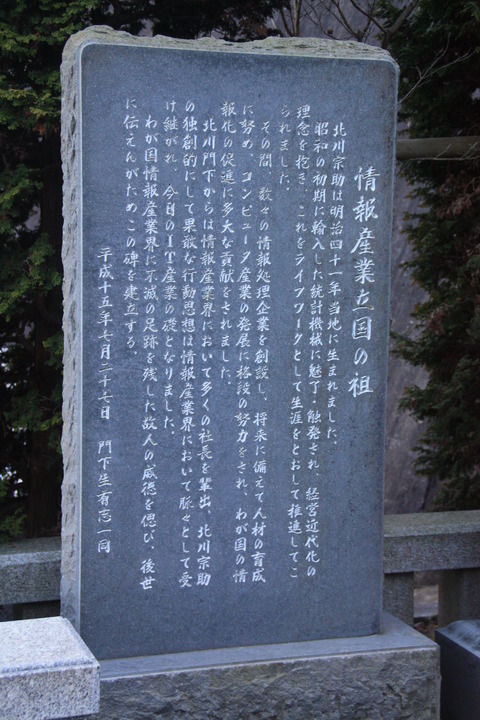 情報産業立国の祖
北川宗助は明治四十一年当地に生まれました。
昭和の初期に輸入した統計機械に魅了・触発され、経営近代化の
理念を抱き、これをライフワークとして生涯をとおして推進してこ
られました。
その間、数々の情報処理企業を創設し、将来に備えて人材の育成
に努め、コンピュータ産業の発展に格段の努力をされ、わが国の情
報化の促進に多大な貢献をされました。
北川門下からは情報産業界において多くの社長を輩出、北川宗助
の独創的にして果敢な行動思想は情報産業界において脈々として受
け継がれ、今日のIT産業の礎となりました。
わが国情報産業界に不滅の足跡を残した故人の威徳を偲び、後世
に伝えんがためこの碑を建立する。
平成十五年七月二十七日 門下生有志一同